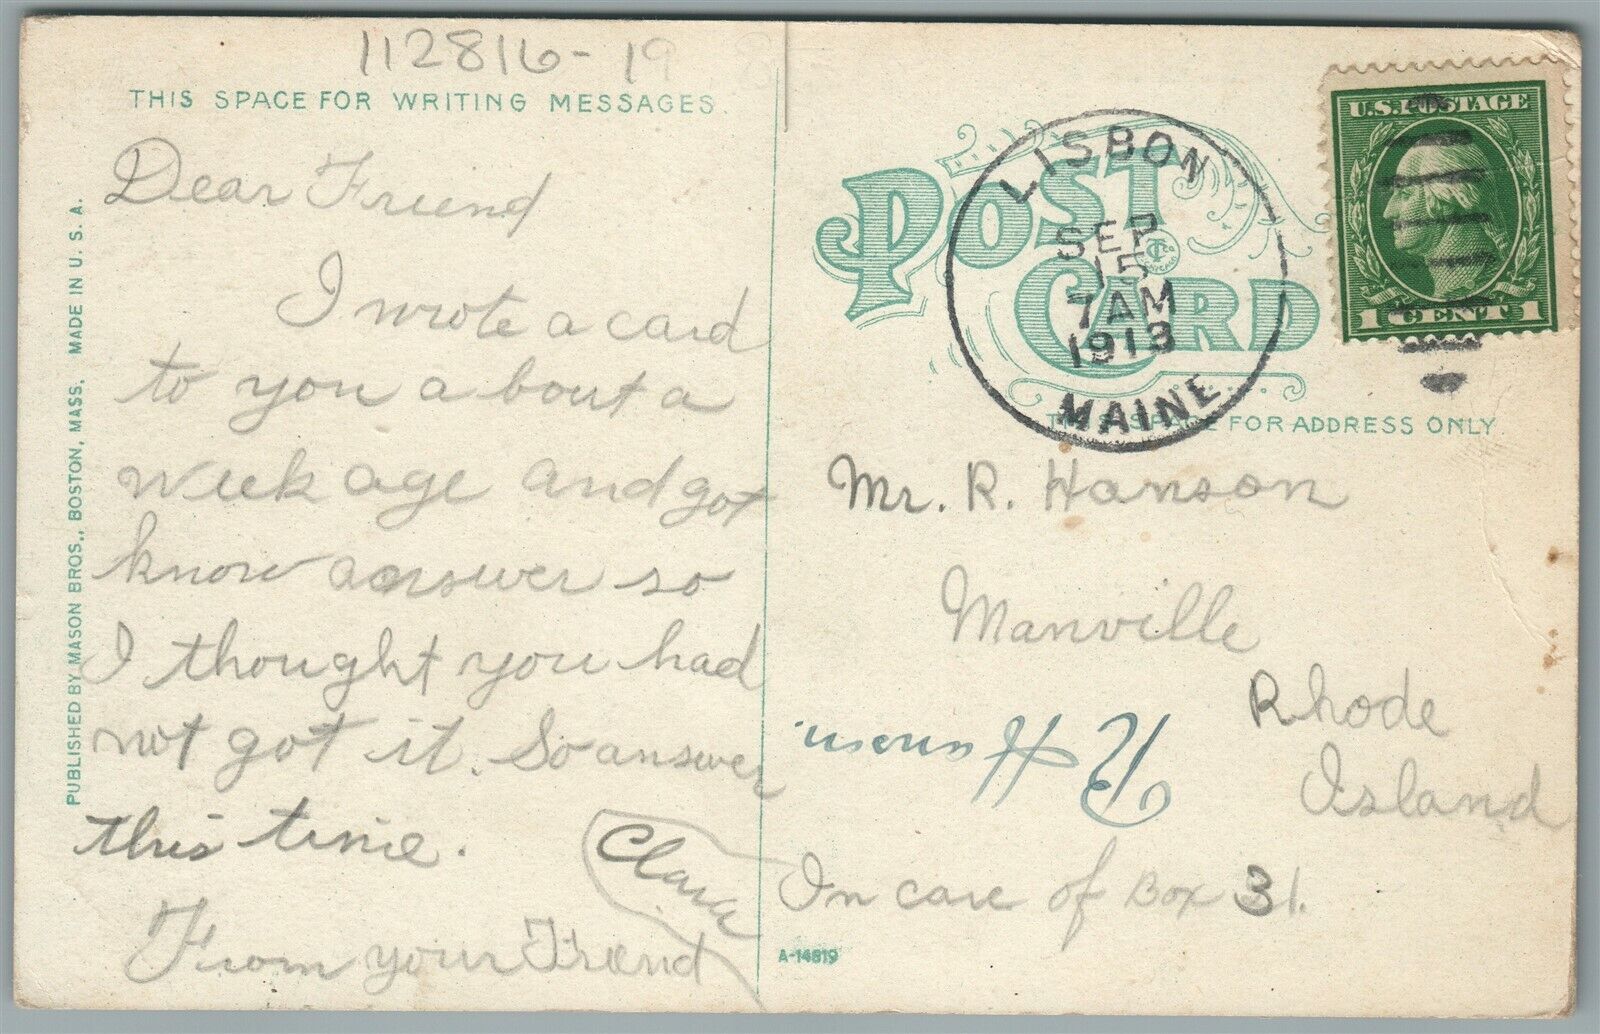 112816-19
THIS SPACE FOR WRITING MESSAGES.
Dear Friend
I wrote a card
to you a bout a
week age and got
know answer so
I thought you had
not got it. So answer
this time.
From your Friend
Clara
PUBLISHED BY MASON BROS., BOSTON, MASS. MADE IN U. S. A.
POST CARD
LISBON
SEP
15
7AM
1913
MAINE
U.S. POSTAGE
1 CENT 1
THIS SPACE FOR ADDRESS ONLY.
Mr. R. Hanson
Manville
Rhode
Island
R Hanson
In care of Box 31.
A-14819